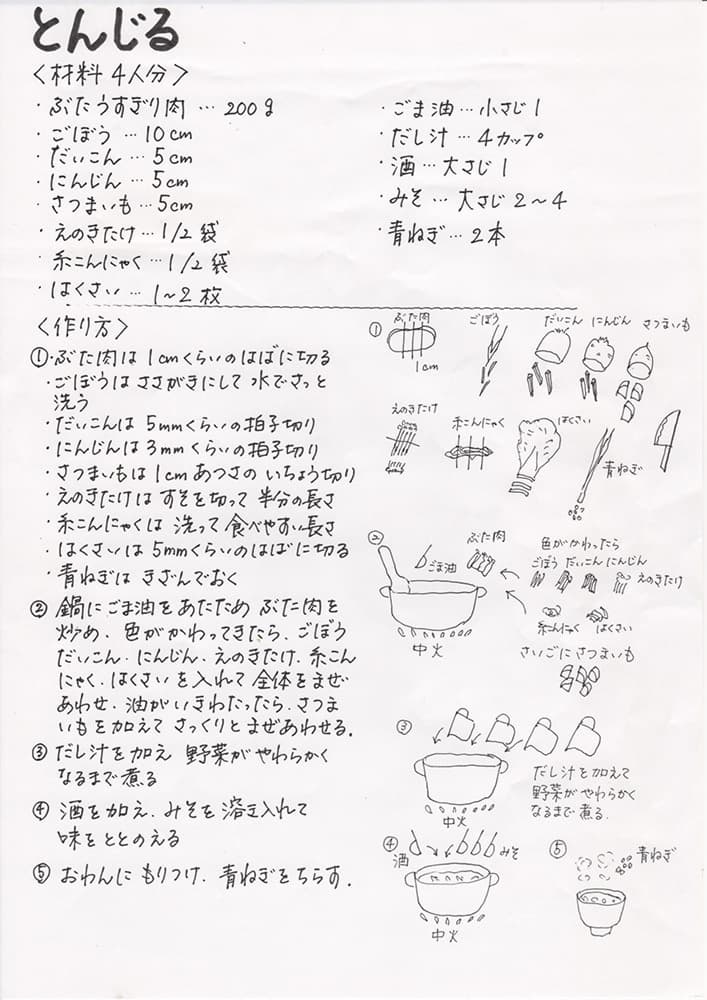 とんじる
〈材料 4人分〉
・ぶたうすぎり肉…200g
・ごぼう…10cm
・だいこん…5cm
・にんじん…5cm
・さつまいも…5cm
・えのきたけ…1/2袋
・糸こんにゃく…1/2袋
・はくさい…1〜2枚
・ごま油…小さじ1
・だし汁…4カップ
・酒…大さじ1
・みそ…大さじ2〜4
・青ねぎ…2本
〈作り方〉
①・ぶた肉は1cmくらいのはばに切る
・ごぼうはささがきにして水でさっと
洗う
・だいこんは5mmくらいの拍子切り
・にんじんは3mmくらいの拍子切り
・さつまいもは1cmあつさのいちょう切り
・えのきたけはすそを切って半分の長さ
・糸こんにゃくは洗って食べやすい長さ
・はくさいは5mmくらいのはばに切る
・青ねぎはきざんでおく
②鍋にごま油をあたためぶた肉を
炒め、色がかわってきたら、ごぼう
だいこん、にんじん、えのきたけ、糸こん
にゃく、はくさいを入れて全体をまぜ
あわせ、油がいきわたったら、さつま
いもを加えてさっくりとまぜあわせる。
③だし汁を加え 野菜がやわらかく
なるまで煮る
④酒を加え、みそを溶き入れて
味をととのえる
⑤おわんにもりつけ、青ねぎをちらす。
①
ぶた肉
1cm
ごぼう
だいこん にんじん さつまいも
えのきたけ
糸こんにゃく
はくさい
青ねぎ
②
ごま油
ぶた肉
色がかわったら
ごぼう だいこん にんじん
えのきたけ
糸こんにゃく はくさい
中火
さいごにさつまいも
③
だし汁を加えて
野菜がやわらかく
なるまで煮る。
中火
④
酒
みそ
中火
⑤
青ねぎ